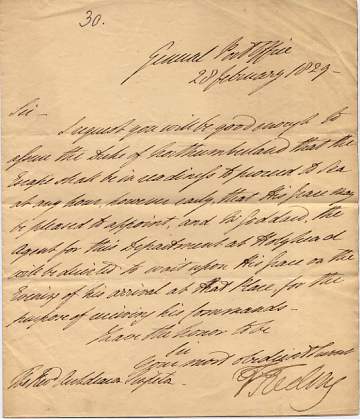 30.
General Post Office
28 february 1829 -
Sir -
I request you will be good enough to
assure the Duke of Northumberland that the
Escape shall be in readiness to proceed to Sea
at any hour, however early, that His Grace may
be pleased to appoint, and Mr Goddard, the
Agent for this Department at Holyhead
will be directed to wait upon His Grace on the
Evening of his arrival at that Place for the
purpose of receiving his Commands -
I have the honor to be
Sir
Your most obedient Servant
The Revd Archdeacon Singleton